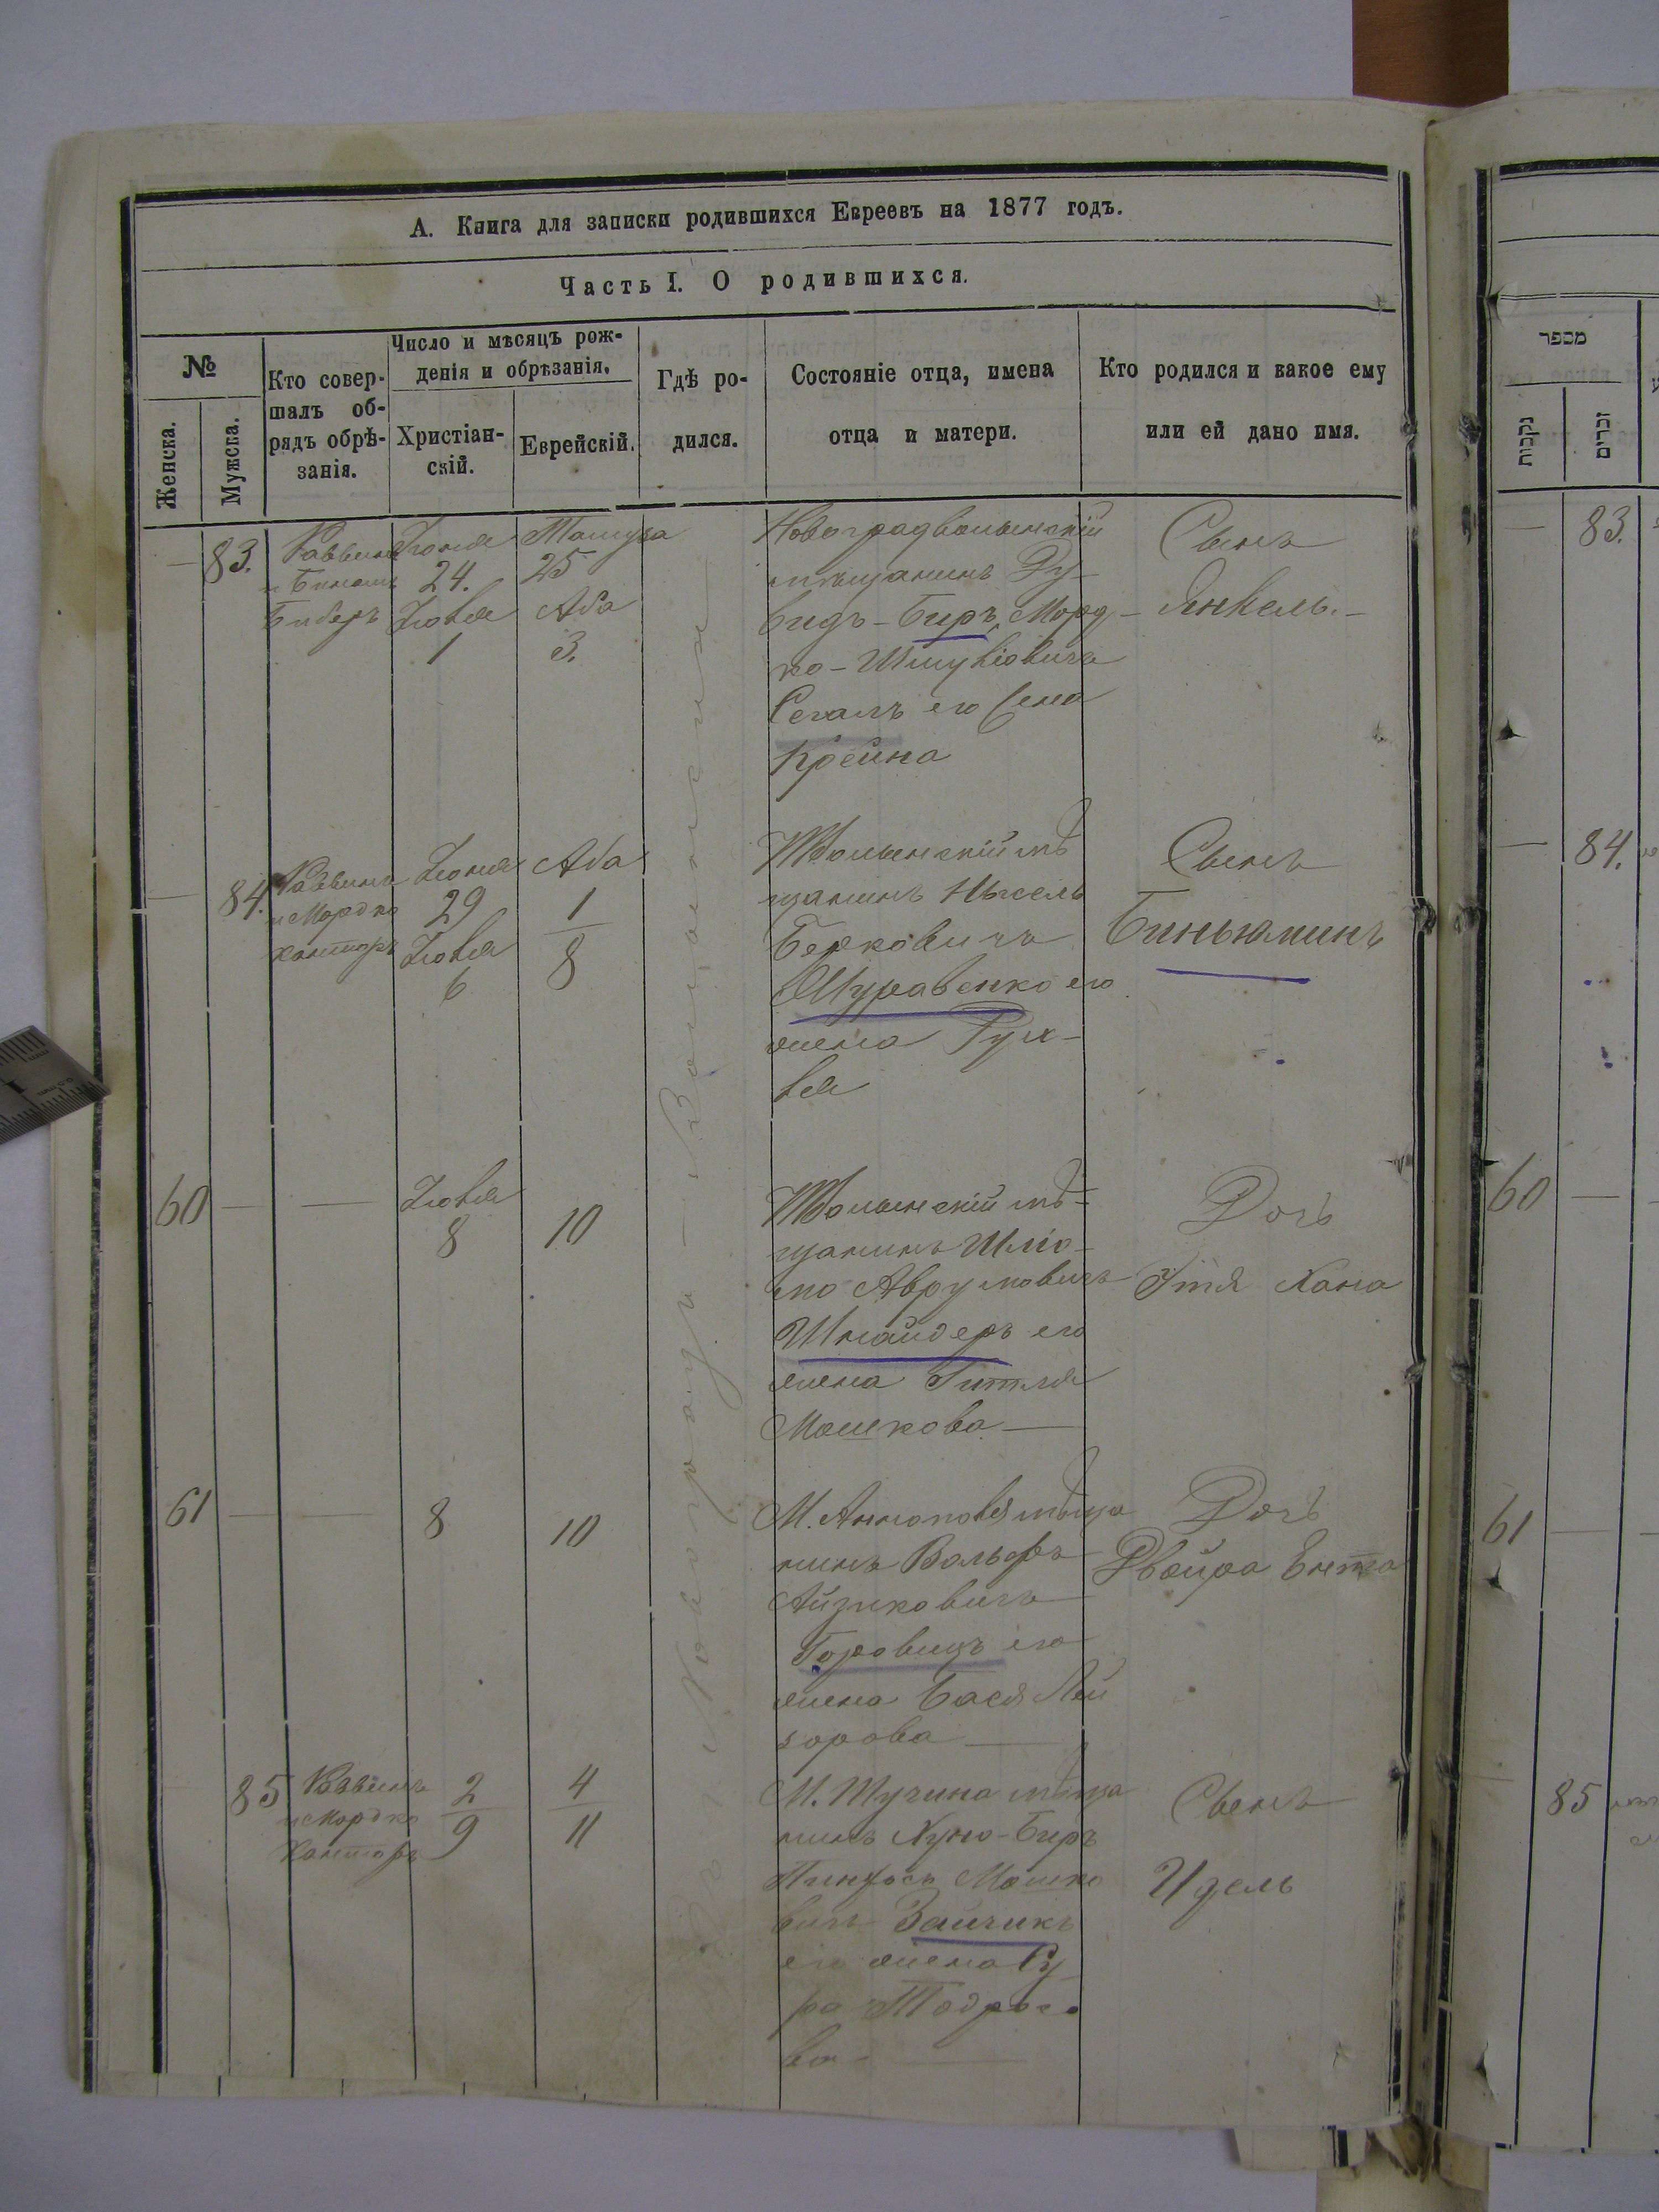 А. Книга для записки родившихся Евреевъ на 1877 годъ.
Часть I. О родившихся.
№
Женска.
Мужска.
Кто совер-
шалъ об-
рядъ обрѣ-
занія.
Число и мѣсяцъ рож-
денія и обрѣзанія.
Христіан-
скій.
Еврейскій.
Гдѣ ро-
дился.
Состояніе отца, имена
отца и матери.
Кто родился и какое ему
или ей дано имя.
83.
Раввинъ
Биберъ
Іюня
24.
Іюля
1
Тамуза
25
Аба
3.
Новоградволынскій
мѣщанинъ Ду-
видъ-Беръ Морд-
ко-Шмуліовичъ
Сегалъ его жена
Крейна
Сынъ
Янкель.
84.
Раввинъ
и Мордко
Канторъ
Іюня
29
Іюля
6
Аба
1
8
НВолынскій мѣ
щанинъ
Берковичъ
Муравенко его
жена Рух-
ля
Сынъ
Биньюминъ
60
Іюля
8
10
НВолынскій мѣ-
щанинъ Шлio-
мо Аврумовичъ
Шнайдеръ его
жена Гитля
Мошкова
Дочь
Этя Хана
61
8
10
М. Аннополя мѣща
нинъ Вольфъ
Айзиковичъ
Горовицъ его
жена Бася Лей
зорова
Дочь
Двойра Ента
85
Раввинъ
и Мордко
Канторъ
2
9
4
11
М. Тучина мѣща
нинъ Хуно-Беръ
Пинхосъ Мошко
вичъ Зайчикъ
его жена Су
ра Тодросо
ва
Сынъ
Идель
Новоградъ-Волынскій
מספר
נקבות
זכרים
83.
84.
60
61
85